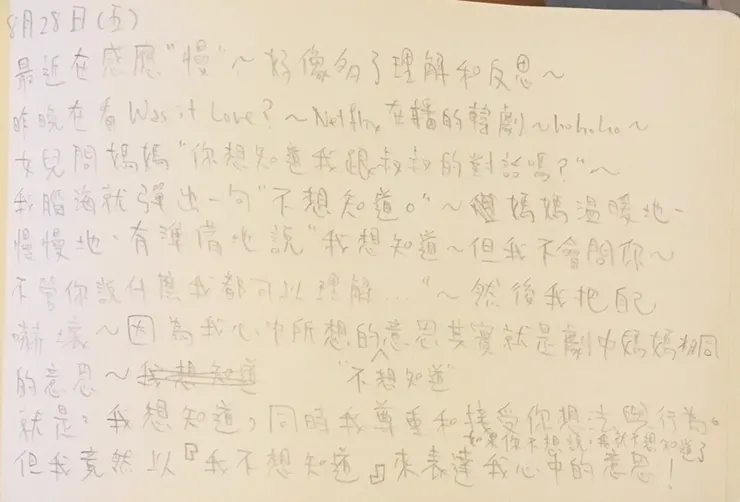 8月28日(五)
最近在感應"慢"~好像多了理解和反思~
昨晚在看Was it Love?~Netflix在播的韓劇~hohoho~
女兒問媽媽"你想知道我跟叔叔的對話嗎?"~
我腦海就彈出一句"不想知道。"~ 媽媽溫暖地、
慢慢地、有準備地說"我想知道~但我不會問你~
不管你說什麼我都可以理解..."~然後我把自己
嚇壞~因為我心中所想的意思其實就是劇中媽媽相同
"不想知道"
的意思~我想知道
就是,我想知道,同時我尊重和接受你想法與行為。
如果你不想說,我就不想知道了
但我竟然以『我不想知道』來表達我心中的意思!